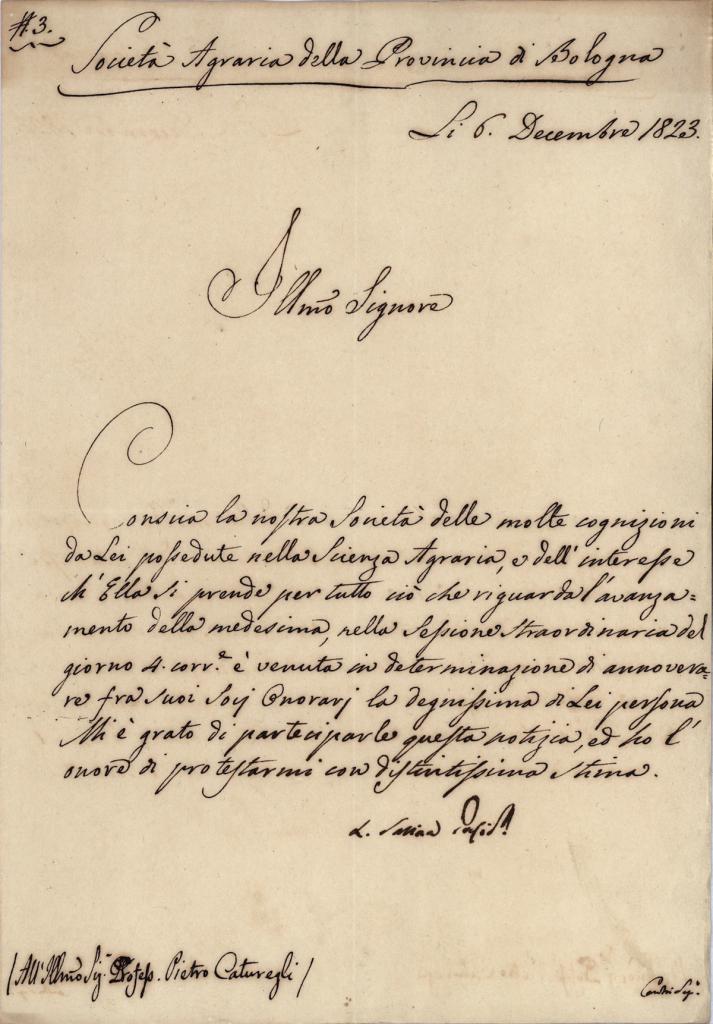 # 3.
Società Agraria della Provincia di Bologna
Li 6. Decembre 1823.
Illmo Signore
Conscia la nostra Società delle molte cognizioni
da Lei possedute nella Scienza Agraria, e dell' interesse
ch' Ella si prende per tutto ciò che riguarda l'avanza=
mento della medesima, nella Sessione straordinaria del
giorno 4. corr.e è venuta in determinazione di annovera=
re fra suoi Socj Onorarj la degnissima di Lei persona
Mi è grato di parteciparle questa notizia, ed ho l'
onore di protestarmi con distintissima stima.
L. Savina Presid.e
/ All' Illmo Sig. Profess. Pietro Caturegli /